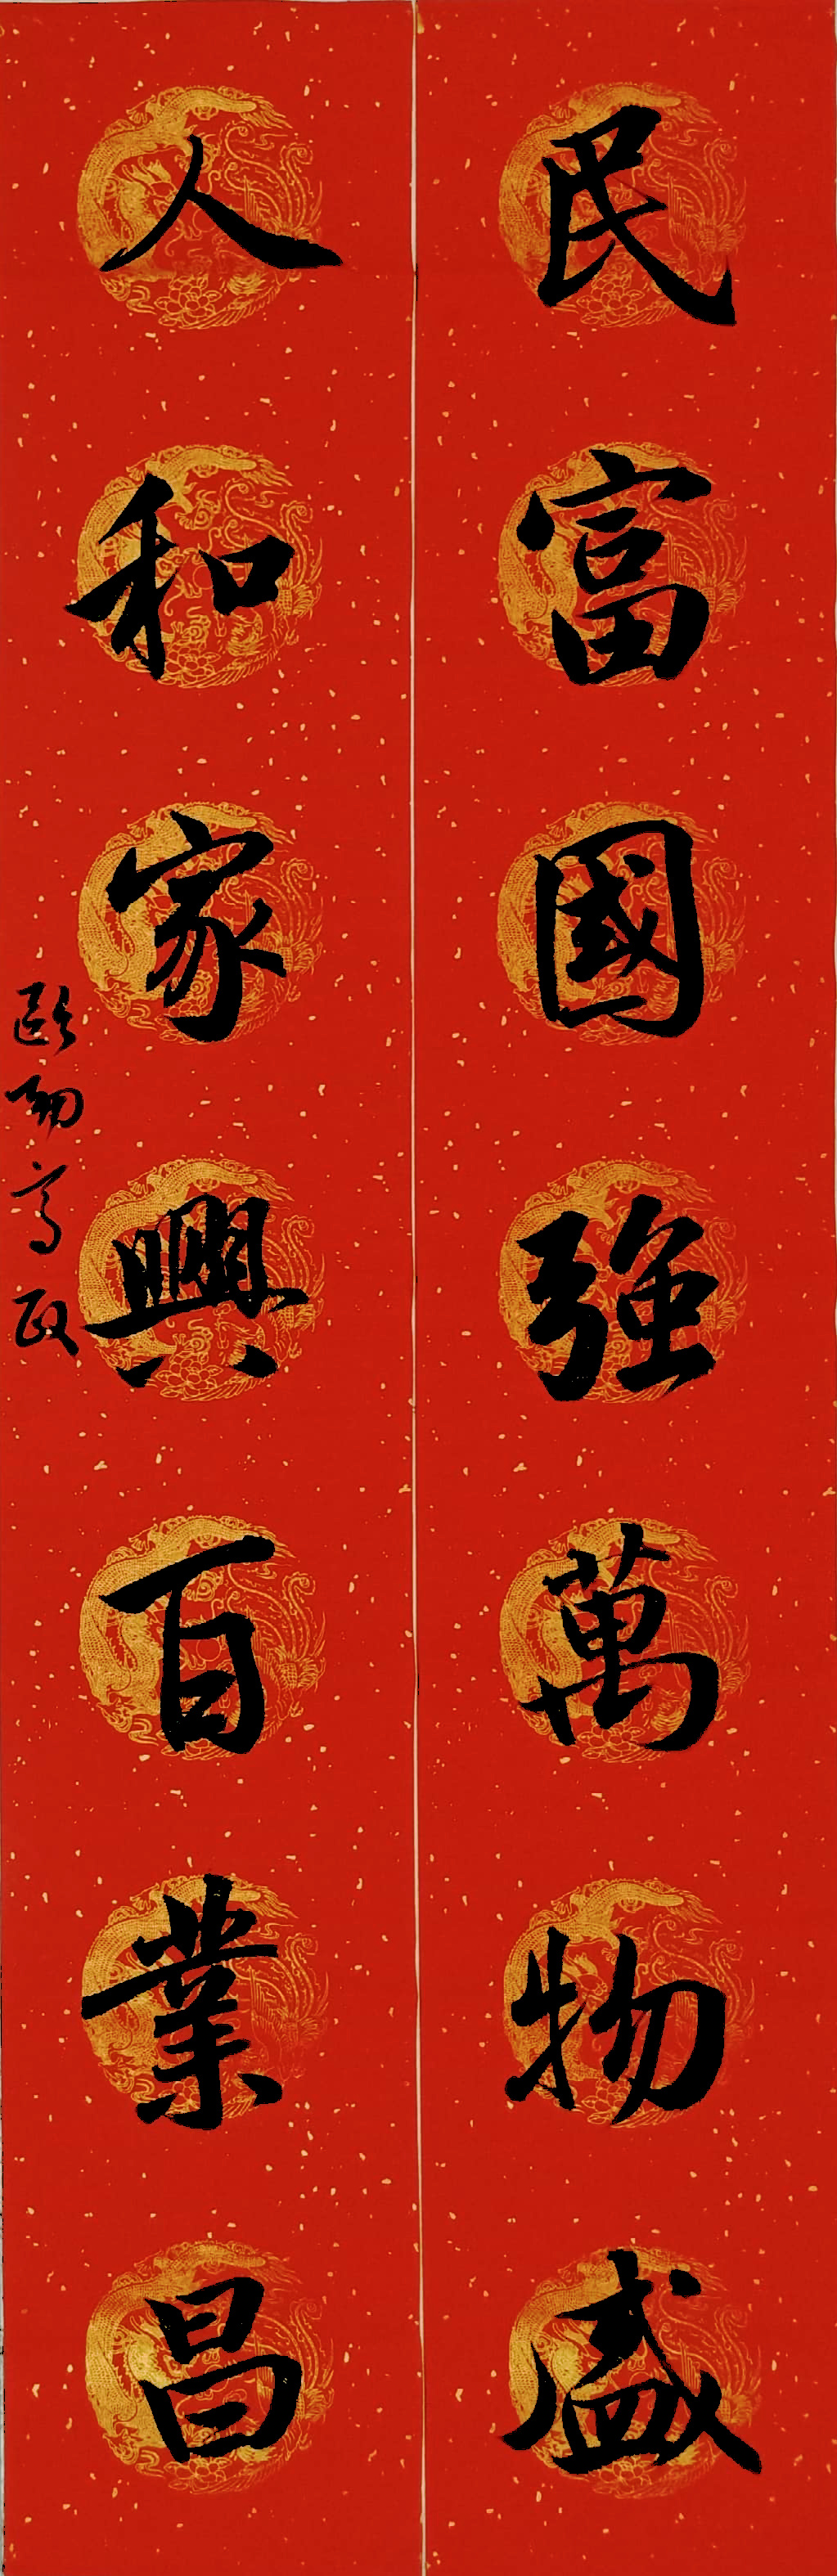 民富國強萬物盛
人和家興百業昌